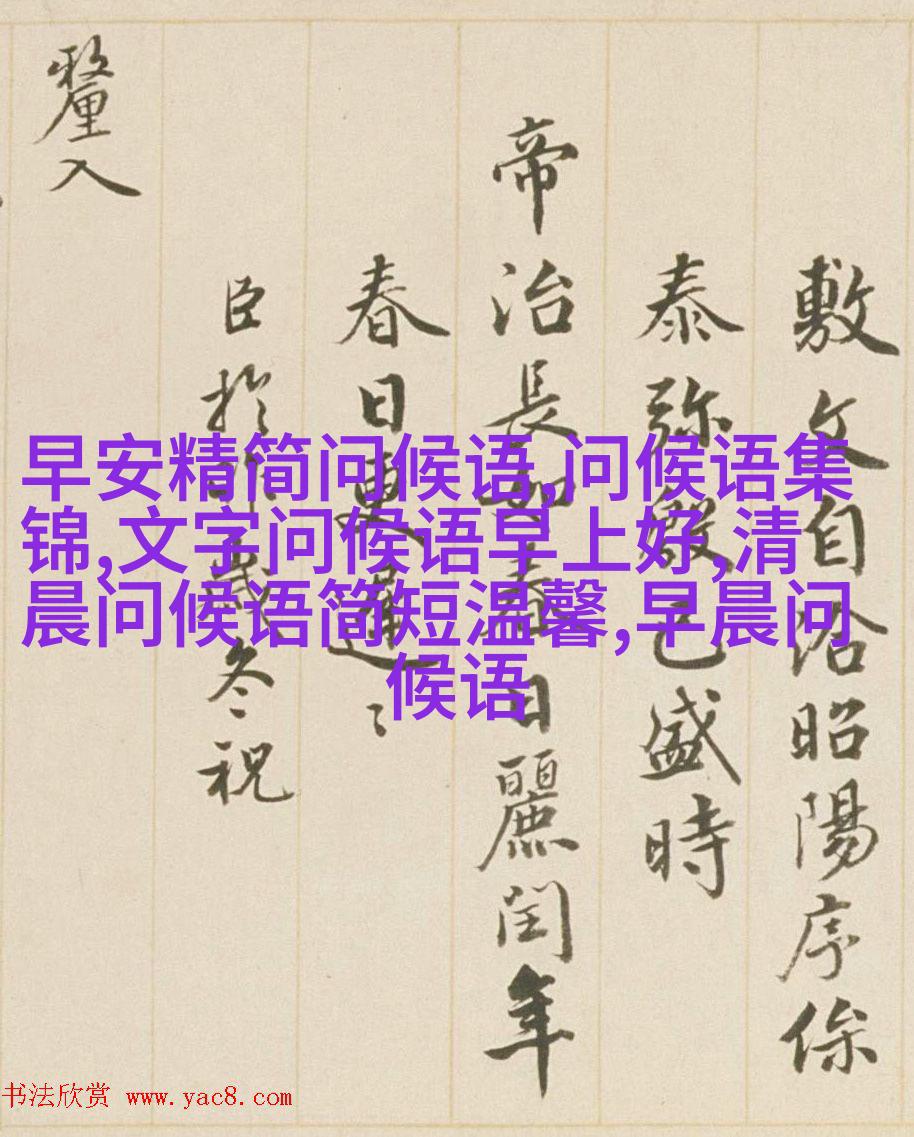 敷文自洽昭陽序條
泰弥殷已盛時
帝治長如春日麗閏年
春日更遲〻
臣於冬祝
釐入
早安精简问候语,问候语集
锦,文字问候语早上好,清
晨问候语简短温馨,早晨问
候语
书法欣赏 www.yac8.com